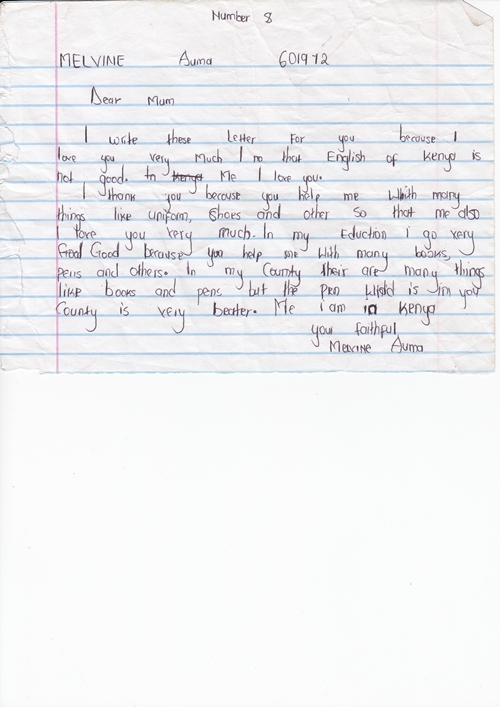 Number 8
MELVINE Auma 601972
Dear Mum
I write these Letter For you because I
love you very Much I no that English of Kenya is
not good. In Kenya Me I love you.
I thank you because you help me Whith many
things like uniform, Shoes and other so that me also
I love you very much. In my Eduction i go very
Good because you help me With many books,
pens and others. In my County their are many things
like books and pens but the pen Which is in you
County is very beater. Me i am in Kenya
your faithful
Melvine Auma